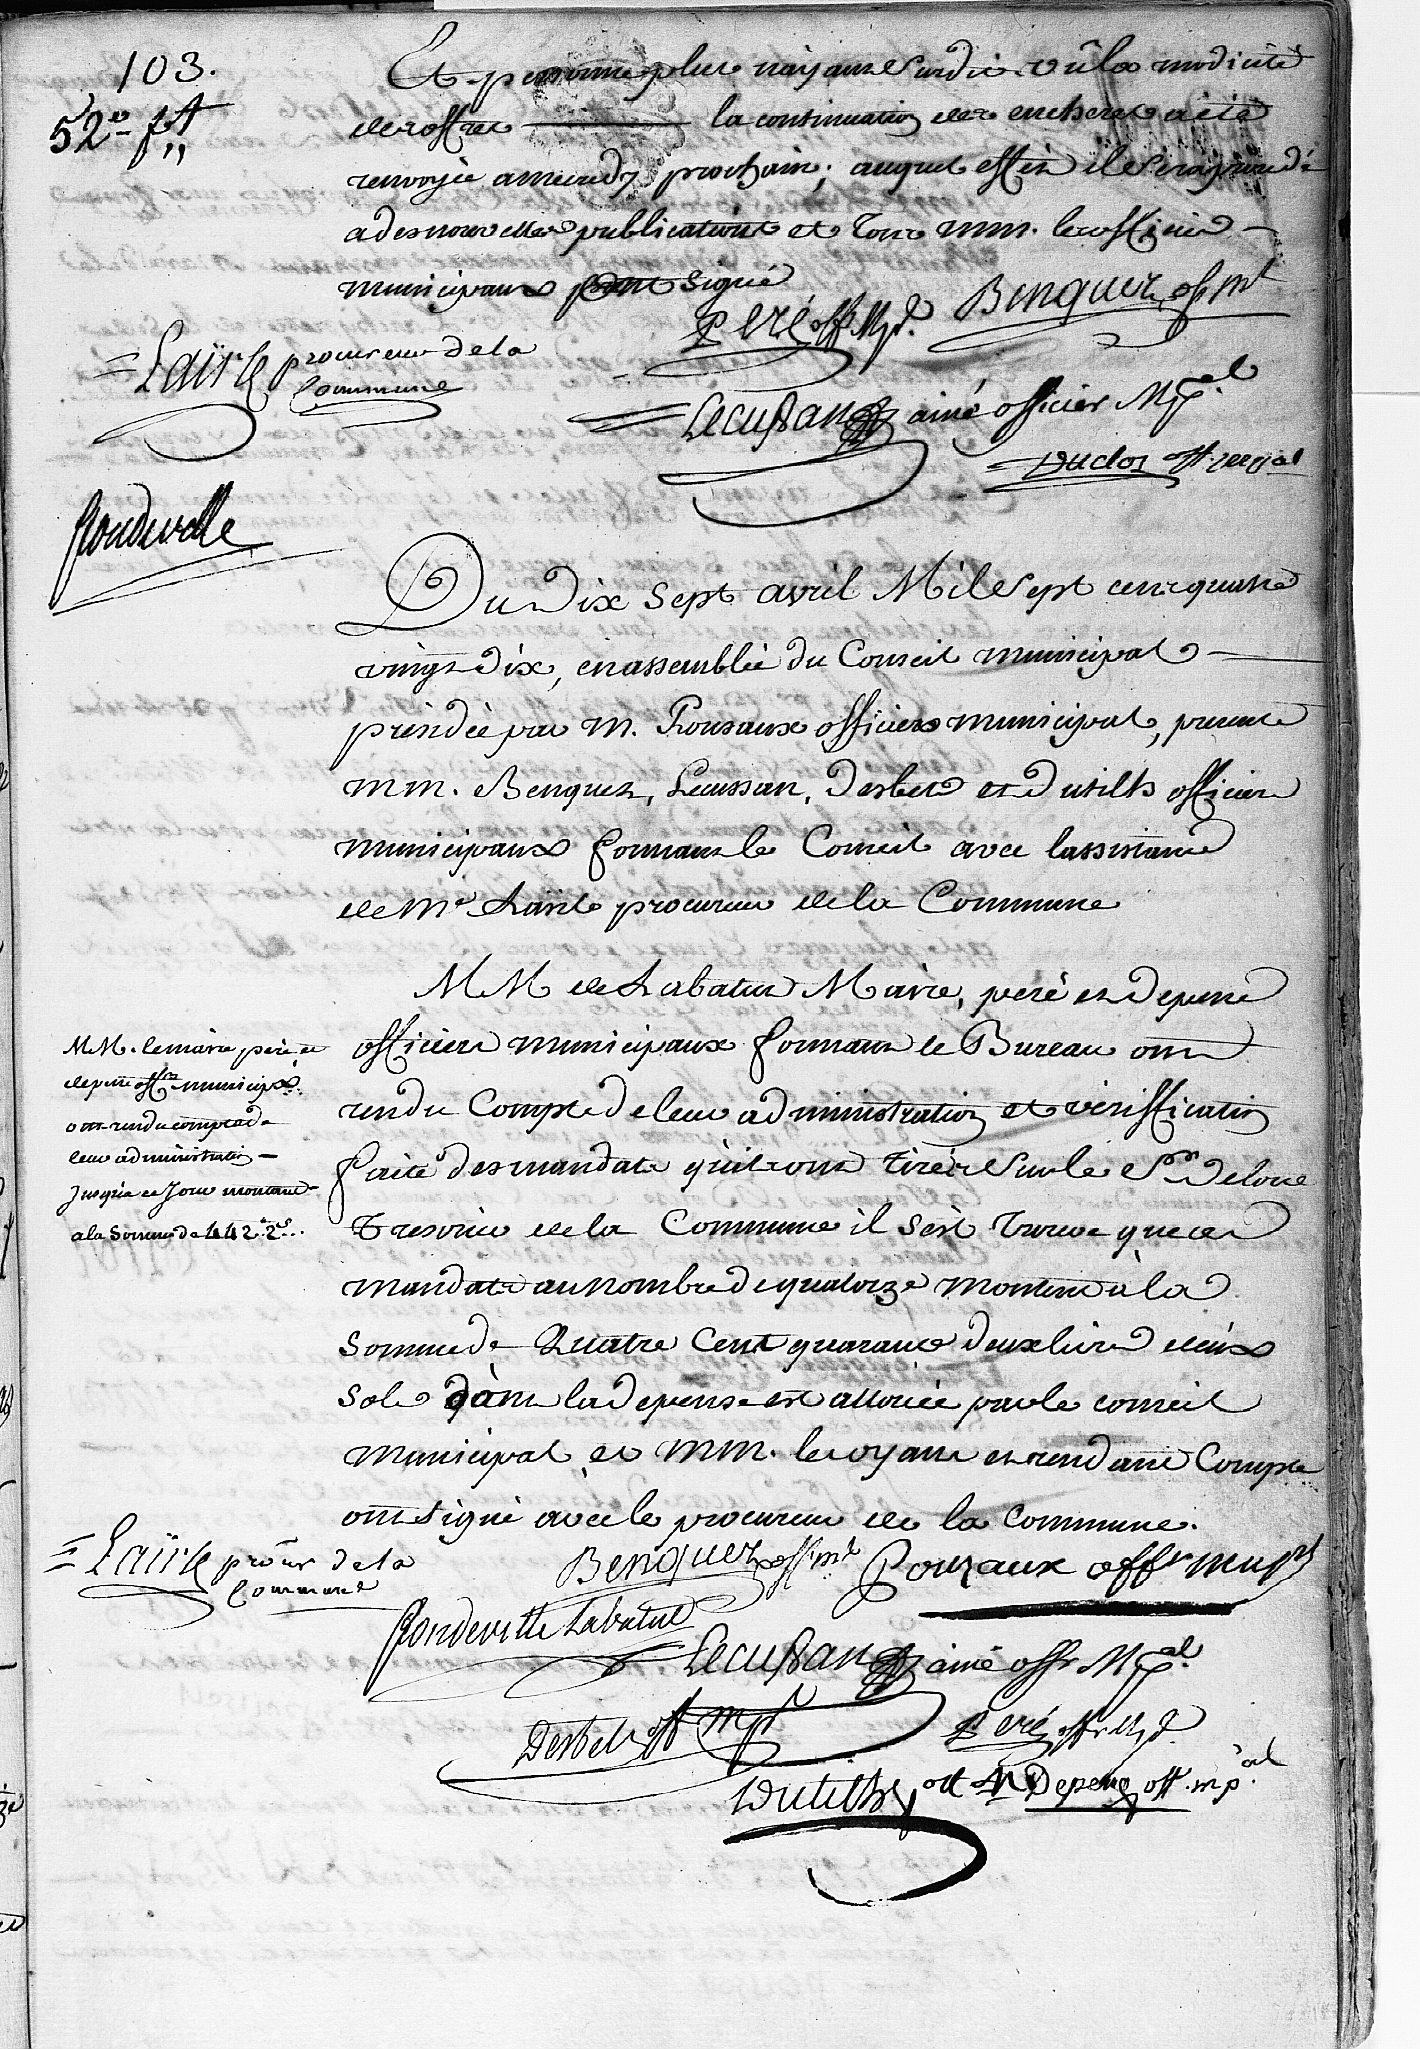 103.
52e ft
Et personne plus n'ayant surdit. vû la modicité
des offres la continuation des encheres a été
renvoyée a mercredy prochain; auquel effet il sera procédé
a des nouvelles publications et tous MM. les officiers
municipaux ont signé
Peré off. Mpl. Benquez of. ml
Laïrle procureur de la
Commune
Lecussan ainé officier Mpal.
Duclos off. mpal
Rondeville
Du Dix Sept avril Mil Sept cent quatre
vingt dix, en assemblée du Conseil municipal
présidée par M. Pouzaux officier municipal, presents
MM. Benquez, Lecussan, Desbets et Dutilh officiers
municipaux formant le Conseil avec l'assistance
de Me Laïrle procureur de la Commune
MM. le maire peré et
depene offrs municipx
ont rendu compte de
leur administration
jusqu'a ce jour montant
a la Somme de 442 lt 2 s...
MM de Labatut Maire, peré et depene
officiers municipaux formant le Bureau ont
rendu Compte de leur administration et verification
faite des mandats qu'ils ont tirés sur le Sr Delort
Tresorier de la Commune il s'est trouvé que ces
mandats au nombre de quatorze montent à la
somme de Quatre Cent quarante deux livres deux
sols dont la depense est allouée par le conseil
municipal, et MM. les oyants et rendants Compte
ont signé avec le procureur de la Commune.
Laïrle procur de la
Commune
Benquez off. ml Pouzaux offr mupl
Rondeville Labatut
Lecussan ainé offr Mpal.
Desbets off mpl Peré offr Mpl
Dutilh off Depene off. mpal